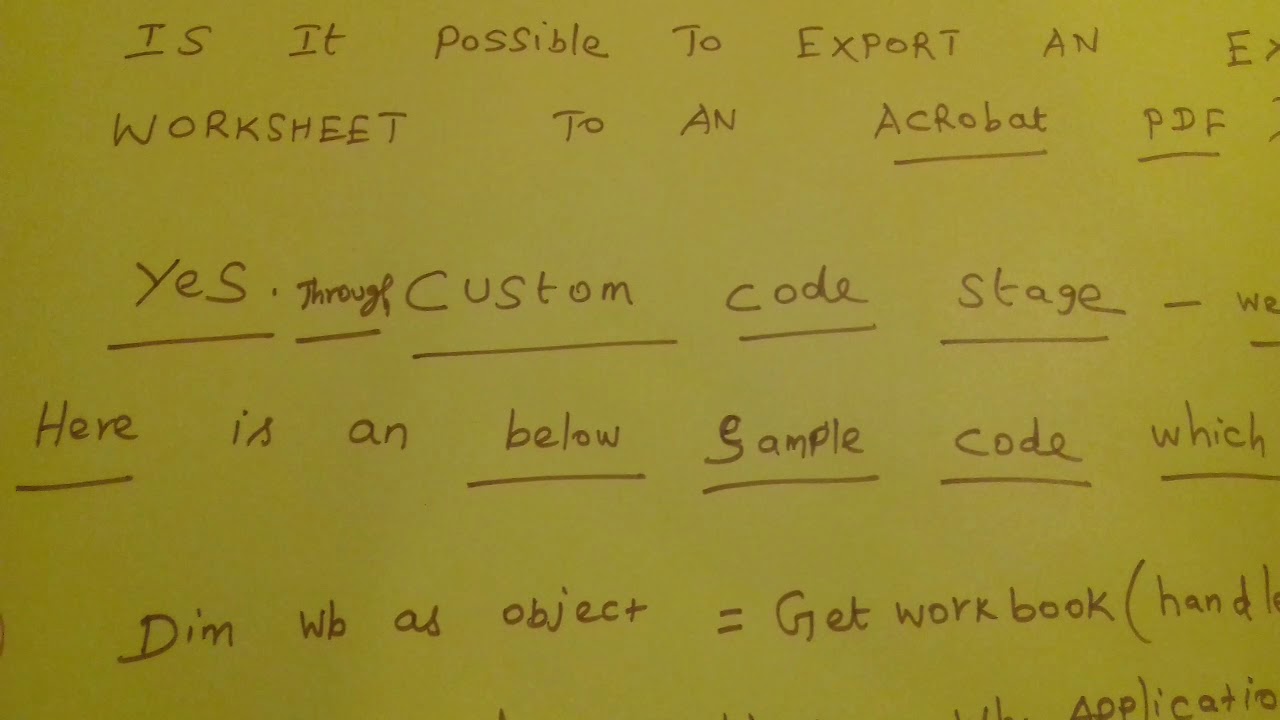 IS It Possible To EXPORT AN
WORKSHEET TO AN ACRobat PDF
Yes. Through Custom code stage - we
Here is an below Sample code which
Dim wb as object = Get workbook(handle
Applicatio